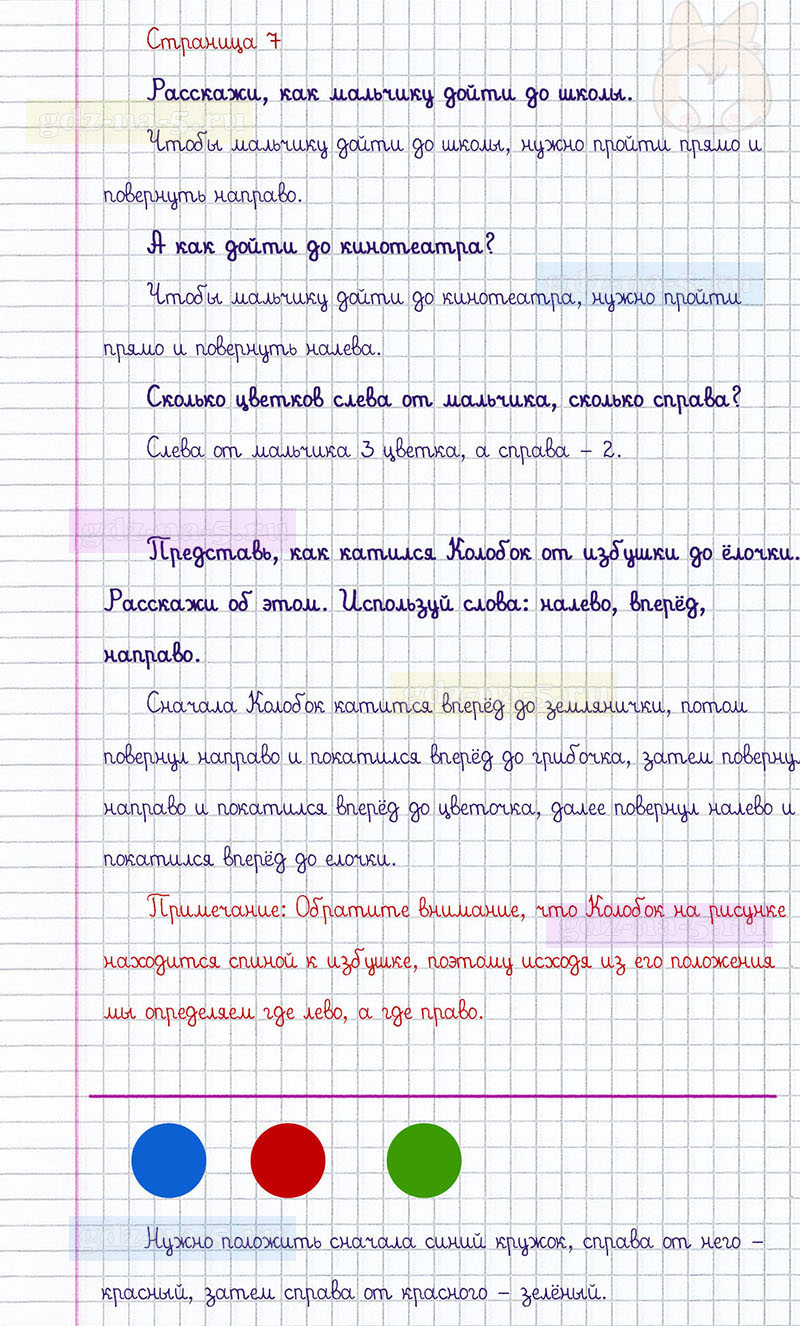 Страница 7
Расскажи, как мальчику дойти до школы.
gdz-na-5.ru
Чтобы мальчику дойти до школы, нужно пройти прямо и
повернуть направо.
А как дойти до кинотеатра?
gdz-na-5.ru
Чтобы мальчику дойти до кинотеатра, нужно пройти
прямо и повернуть налева.
Сколько цветков слева от мальчика, сколько справа?
Слева от мальчика 3 цветка, а справа – 2.
gdz-na-5.ru
Представь, как катился Колобок от избушки до ёлочки.
Расскажи об этом. Используй слова: налево, вперёд,
направо.
gdz-na-5.ru
Сначала Колобок катится вперёд до землянички, потом
повернул направо и покатился вперёд до грибочка, затем повернул
направо и покатился вперёд до цветочка, далее повернул налево и
покатился вперёд до елочки.
Примечание: Обратите внимание, что Колобок на рисунке
gdz-na-5.ru
находится спиной к избушке, поэтому исходя из его положения
мы определяем где лево, а где право.
gdz-na-5.ru
Нужно положить сначала синий кружок, справа от него –
красный, затем справа от красного – зелёный.